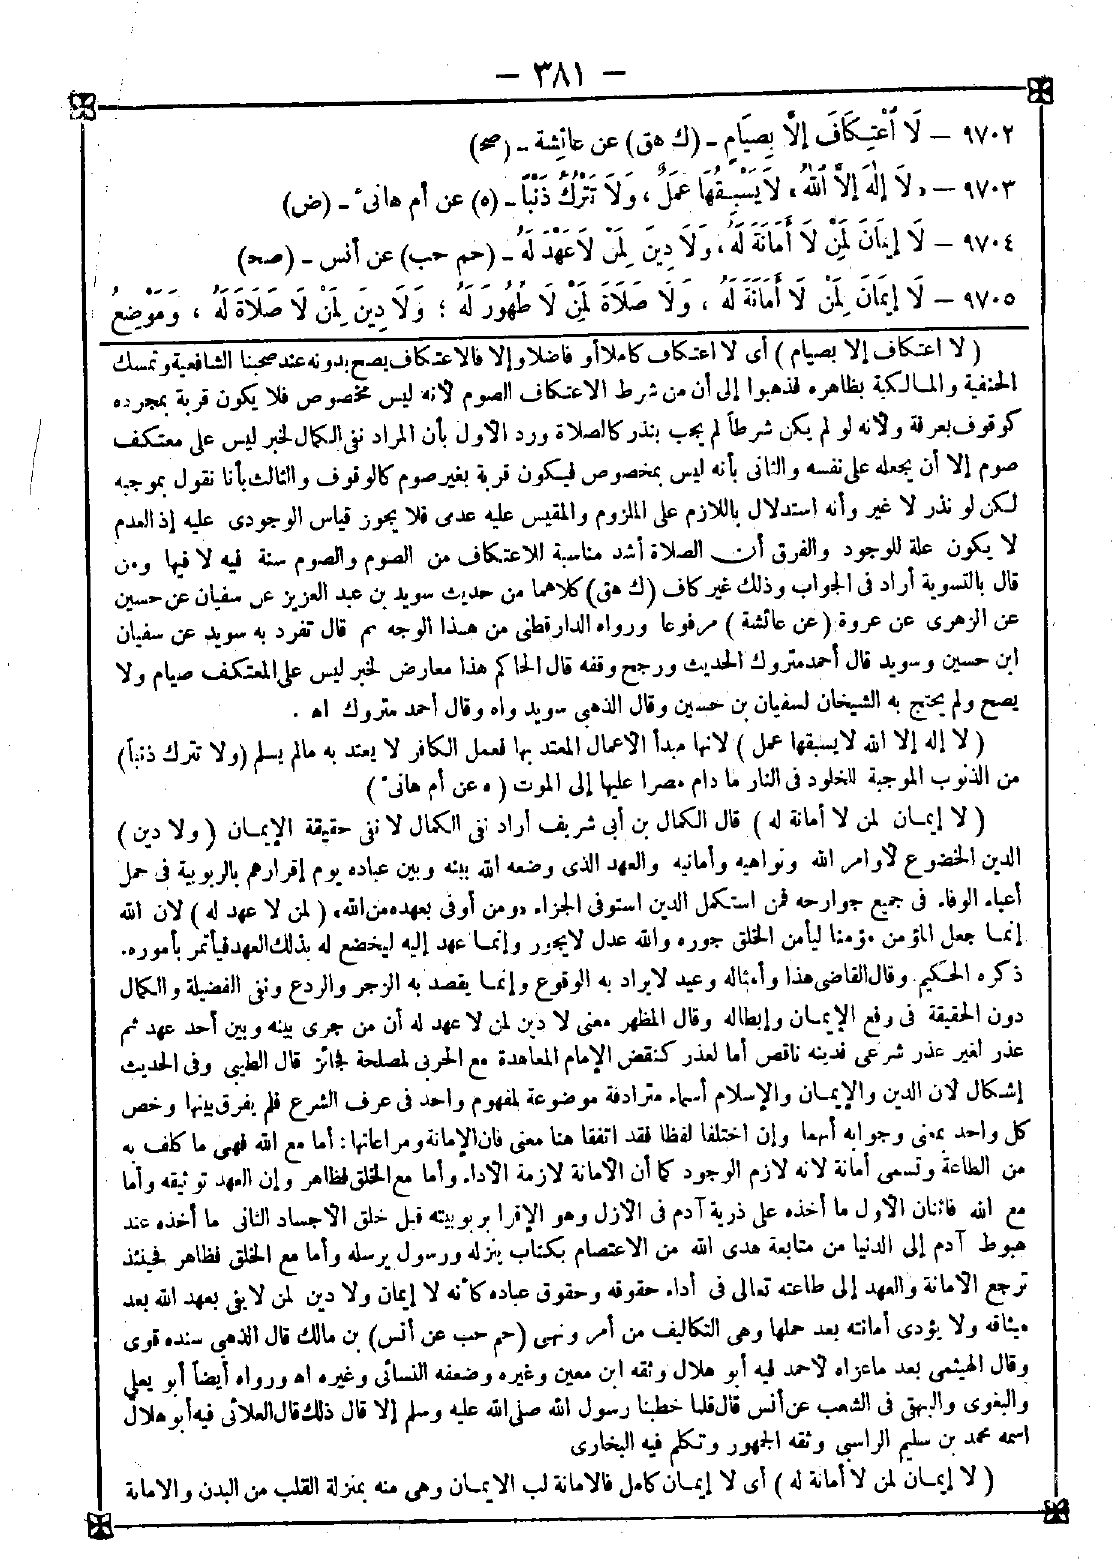 — ٣٨١ —
٩٧٠٢ — لَا اعْتِكَافَ إِلَّا بِصِيَامٍ ـ (ك هق) عن عائشة ـ (صح)
٩٧٠٣ — «لَا إِلٰهَ إِلَّا اللهُ» لَا يَسْبِقُهَا عَمَلٌ، وَلَا تَتْرُكُ ذَنْبًا ـ (ه) عن أم هانىء ـ (ض)
٩٧٠٤ — لَا إِيمَانَ لِمَنْ لَا أَمَانَةَ لَهُ، وَلَا دِينَ لِمَنْ لَا عَهْدَ لَهُ ـ (حم حب) عن أنس ـ (صح)
٩٧٠٥ — لَا إِيمَانَ لِمَنْ لَا أَمَانَةَ لَهُ، وَلَا صَلَاةَ لِمَنْ لَا طُهُورَ لَهُ؛ وَلَا دِينَ لِمَنْ لَا صَلَاةَ لَهُ، وَمَوْضِعُ
( لا اعتكاف إلا بصيام ) أى لا اعتكاف كاملا أو فاضلا وإلا فالاعتكاف يصح بدونه عند صحبنا الشافعية وتمسك
الحنفية والمالكية بظاهره فذهبوا إلى أن من شرط الاعتكاف الصوم لأنه ليس مخصوص فلا يكون قربة بمجرده
كوقوف بعرفة ولأنه لو لم يكن شرطاً لم يجب بنذر كالصلاة ورد الأول بأن المراد نفى الكمال لخبر ليس على معتكف
صوم إلا أن يجعله على نفسه والثانى بأنه ليس بمخصوص فيكون قربة بغير صوم كالوقوف والثالث بأنا نقول بموجبه
لكن لو نذر لا غير وأنه استدلال باللازم على الملزوم والمقيس عليه عدمى فلا يجوز قياس الوجودى عليه إذ العدم
لا يكون علة للوجود والفرق أن الصلاة أشد مناسبة للاعتكاف من الصوم والصوم سنة فيه لا فيها ومن
قال بالتسوية أراد فى الجواب وذلك غير كاف (ك هق) كلاهما من حديث سويد بن عبد العزيز عن سفيان عن حسين
عن الزهرى عن عروة ( عن عائشة ) مرفوعا ورواه الدارقطنى من هذا الوجه ثم قال تفرد به سويد عن سفيان
ابن حسين وسويد قال أحمد متروك الحديث ورجح وقفه قال الحاكم هذا معارض لخبر ليس على المعتكف صيام ولا
يصح ولم يحتج به الشيخان لسفيان بن حسين وقال الذهبى سويد واه وقال أحمد متروك اه .
( لا إله إلا الله لا يسبقها عمل ) لأنها مبدأ الأعمال المعتد بها فعمل الكافر لا يعتد به مالم يسلم (ولا تترك ذنباً)
من الذنوب الموجبة للخلود فى النار ما دام مصرا عليها إلى الموت ( ه عن أم هانىء )
( لا إيمان لمن لا أمانة له ) قال الكمال بن أبى شريف أراد نفى الكمال لا نفى حقيقة الإيمان ( ولا دين )
الدين الخضوع لأوامر الله ونواهيه وأمانيه والعهد الذى وضعه الله بينه وبين عباده يوم إقرارهم بالربوبية فى حمل
أعباء الوفاء فى جميع جوارحه فمن استكمل الدين استوفى الجزاء «ومن أوفى بعهده من الله» ( لمن لا عهد له ) لأن الله
إنما جعل المؤمن مؤمنا ليأمن الخلق جوره والله عدل لا يجور وإنما عهد إليه ليخضع له بذلك العهد فيأتمر بأموره.
ذكره الحكيم وقال القاضى هذا وأمثاله وعيد لا يراد به الوقوع وإنما يقصد به الزجر والردع ونفى الفضيلة والكمال
دون الحقيقة فى رفع الإيمان وإبطاله وقال المظهر معنى لا دين لمن لا عهد له أن من جرى بينه وبين أحد عهد ثم
غدر لغير عذر شرعى فدينه ناقص أما لعذر كنقض الإمام المعاهدة مع الحربى لمصلحة فجائز قال الطيبى وفى الحديث
إشكال لأن الدين والإيمان والإسلام أسماء مترادفة موضوعة لمفهوم واحد فى عرف الشرع فلم يفرق بينها وخص
كل واحد بمعنى وجوابه أنهما وإن اختلفا لفظا فقد اتفقا هنا معنى فان الأمانة ومراعاتها: أما مع الله فهى ما كلف به
من الطاعة وتسمى أمانة لأنه لازم الوجود كما أن الأمانة لازمة الأداء وأما مع الخلق فظاهر وإن العهد توثيقه وأما
مع الله فاثنان الأول ما أخذه على ذرية آدم فى الأزل وهو الإقرار بربوبيته قبل خلق الأجساد الثانى ما أخذه عند
هبوط آدم إلى الدنيا من متابعة هدى الله من الاعتصام بكتاب ينزله ورسول يرسله وأما مع الخلق فظاهر فحينئذ
ترجع الأمانة والعهد إلى طاعته تعالى فى أداء حقوقه وحقوق عباده كأنه لا إيمان ولا دين لمن لا يفى بعهد الله بعد
ميثاقه ولا يؤدى أمانته بعد حملها وهى التكاليف من أمر ونهى (حم حب عن أنس) بن مالك قال الذهبى سنده قوى
وقال الهيثمى بعد ماعزاه لأحمد فيه أبو هلال وثقه ابن معين وغيره وضعفه النسائى وغيره اه ورواه أيضاً أبو يعلى
والبغوى والبيهقى فى الشعب عن أنس قال قلما خطبنا رسول الله صلى الله عليه وسلم إلا قال ذلك قال العلائى فيه أبو هلال
اسمه محمد بن سليم الراسبى وثقه الجمهور وتكلم فيه البخارى
( لا إيمان لمن لا أمانة له ) أى لا إيمان كامل فالأمانة لب الإيمان وهى منه بمنزلة القلب من البدن والأمانة